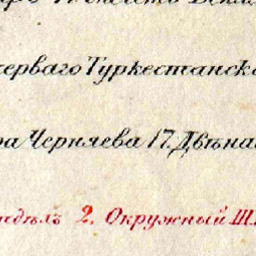 перваго Туркестанск
ра Черняева 17. Двѣна
ндѣлъ 2. Окружный Ш.